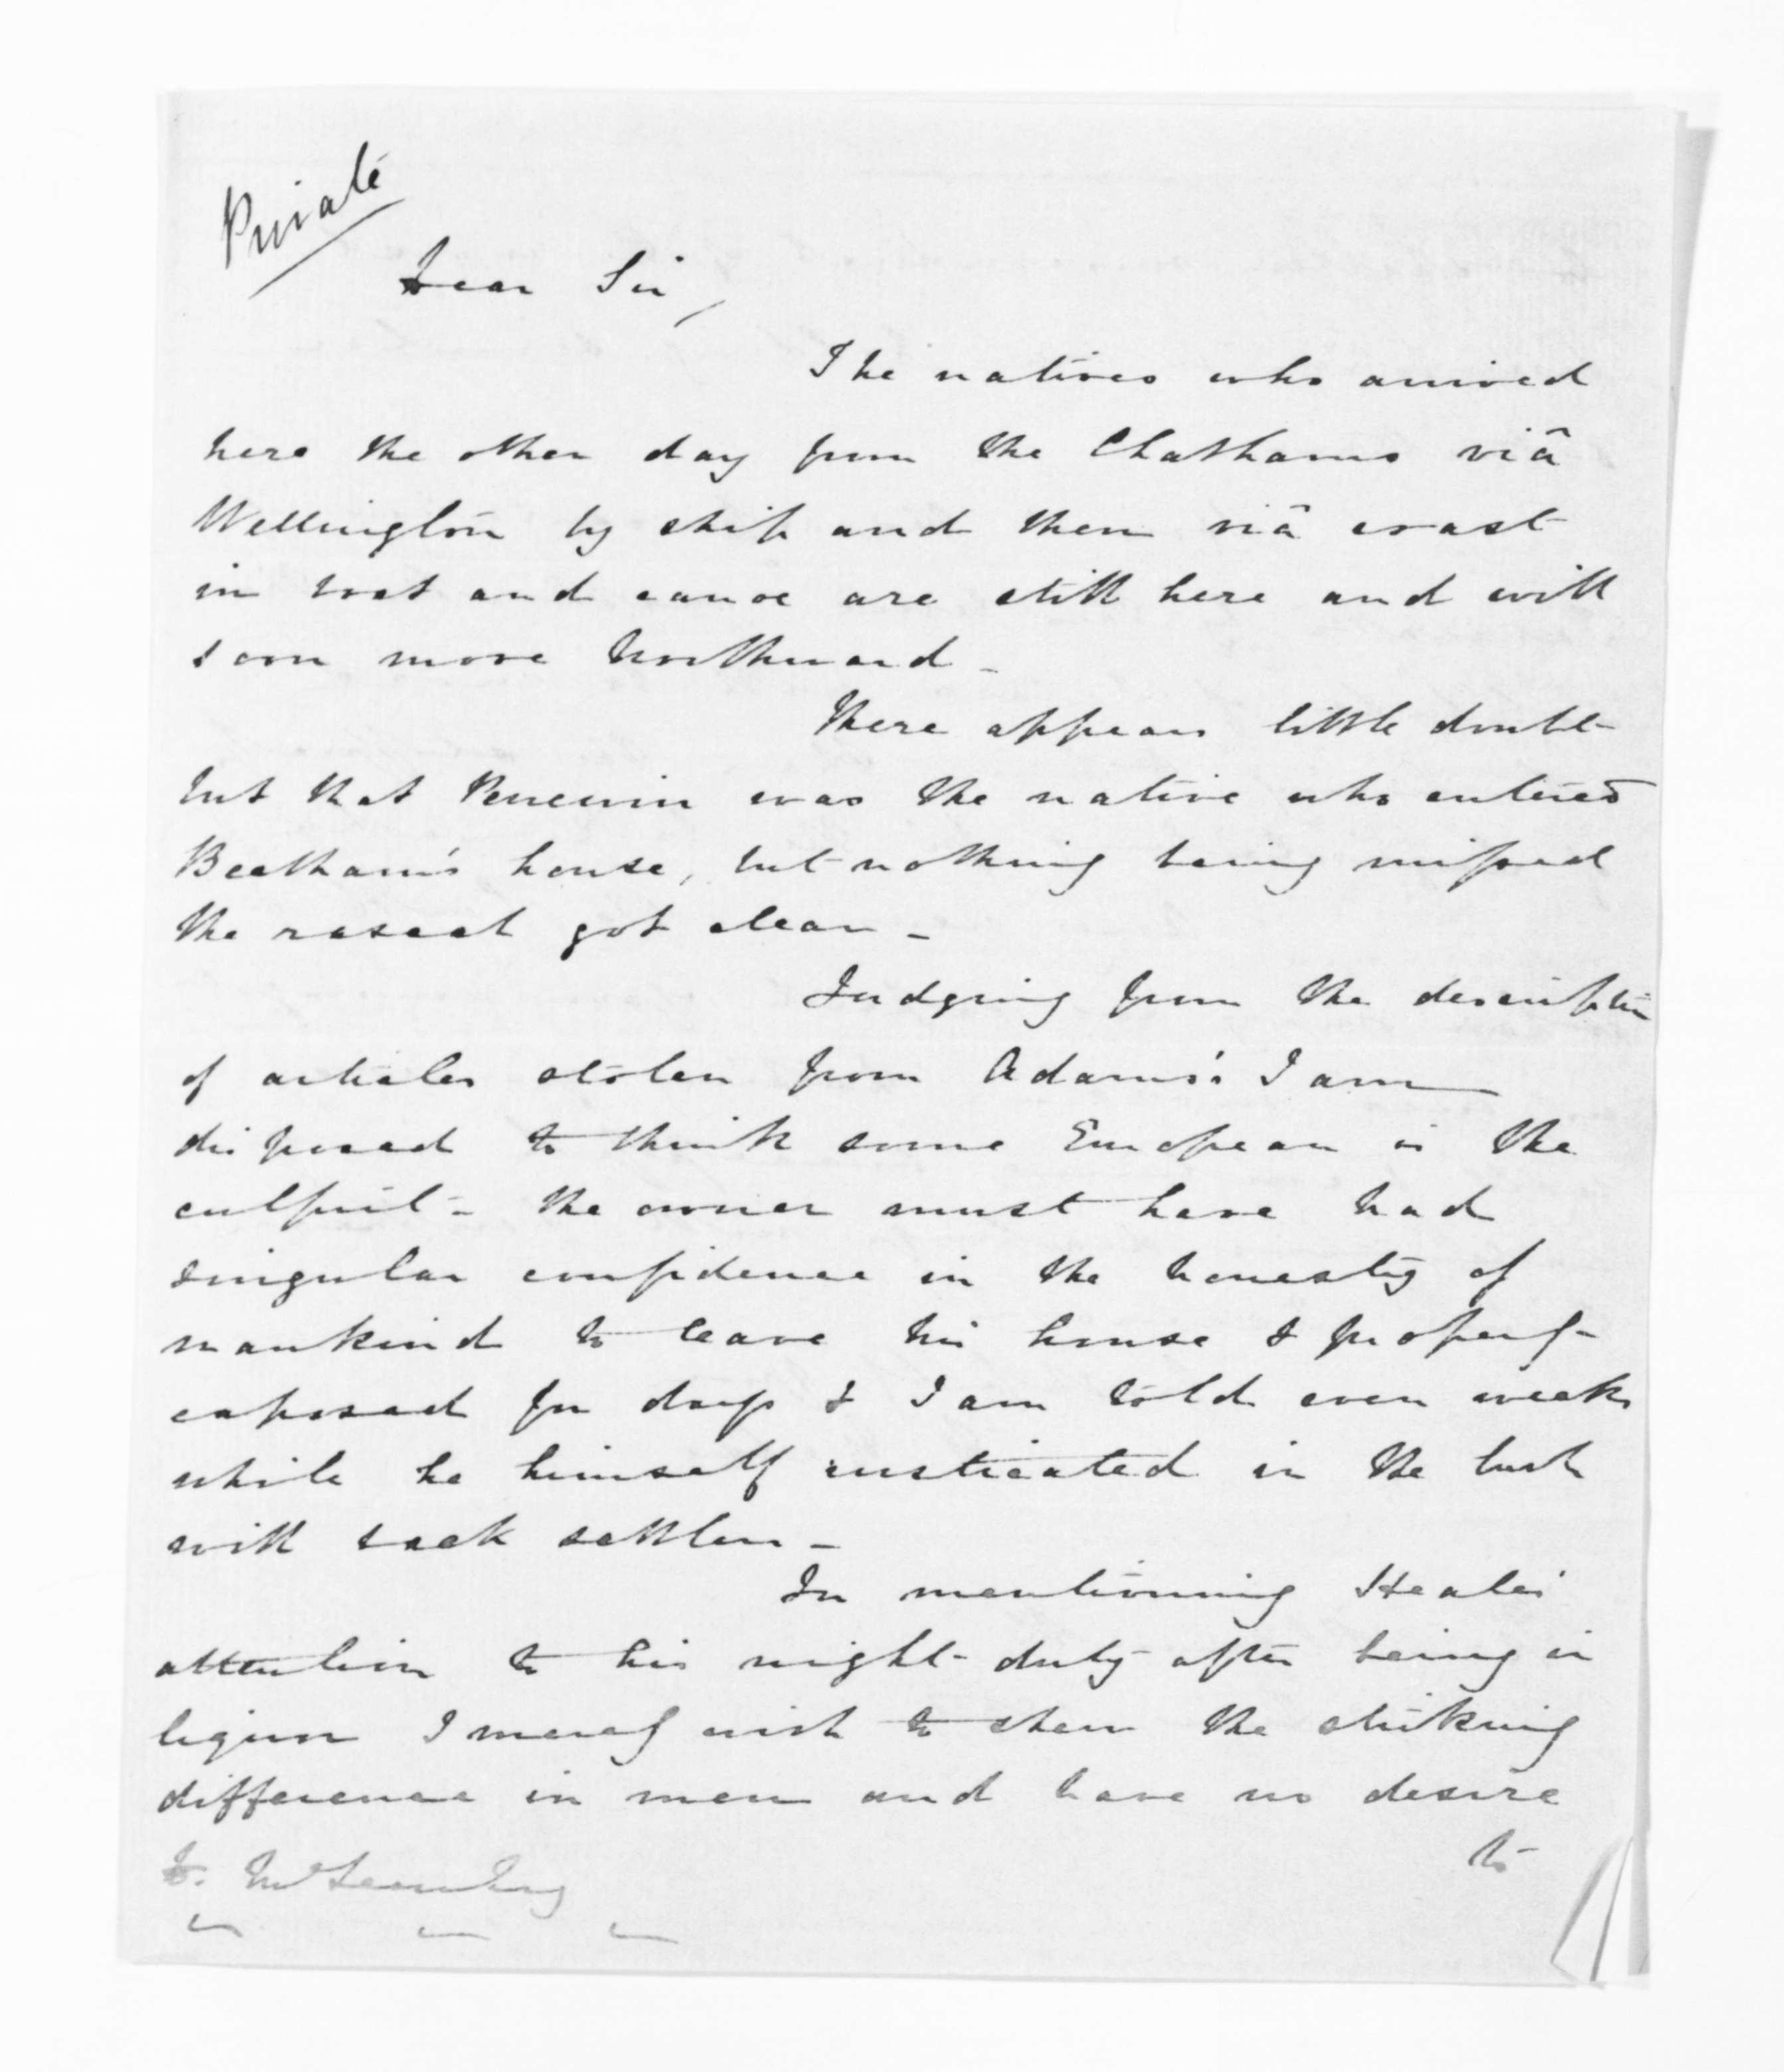 Private
Dear Sir,
The natives who arrived
here the other day from the Chathams viâ
Wellington by ship and then viâ coast
in boat and canoe are still here and will
soon move Northward -
There appears little doubt
but that was the native who entered
Beetham's house, but nothing being missed
the rascal got clear -
Judging from the description
of articles stolen from Adams's I am
disposed to think some European is the
culprit - the owner must have had
singular confidence in the honesty of
mankind to leave his house & property
exposed for days & I am told even weeks
while he himself rusticated in the bush
with back settlers -
In mentioning
attention to his night duty after being in
liquor I merely wish to shew the striking
difference in men and have no desire
to
D. McLean Esq